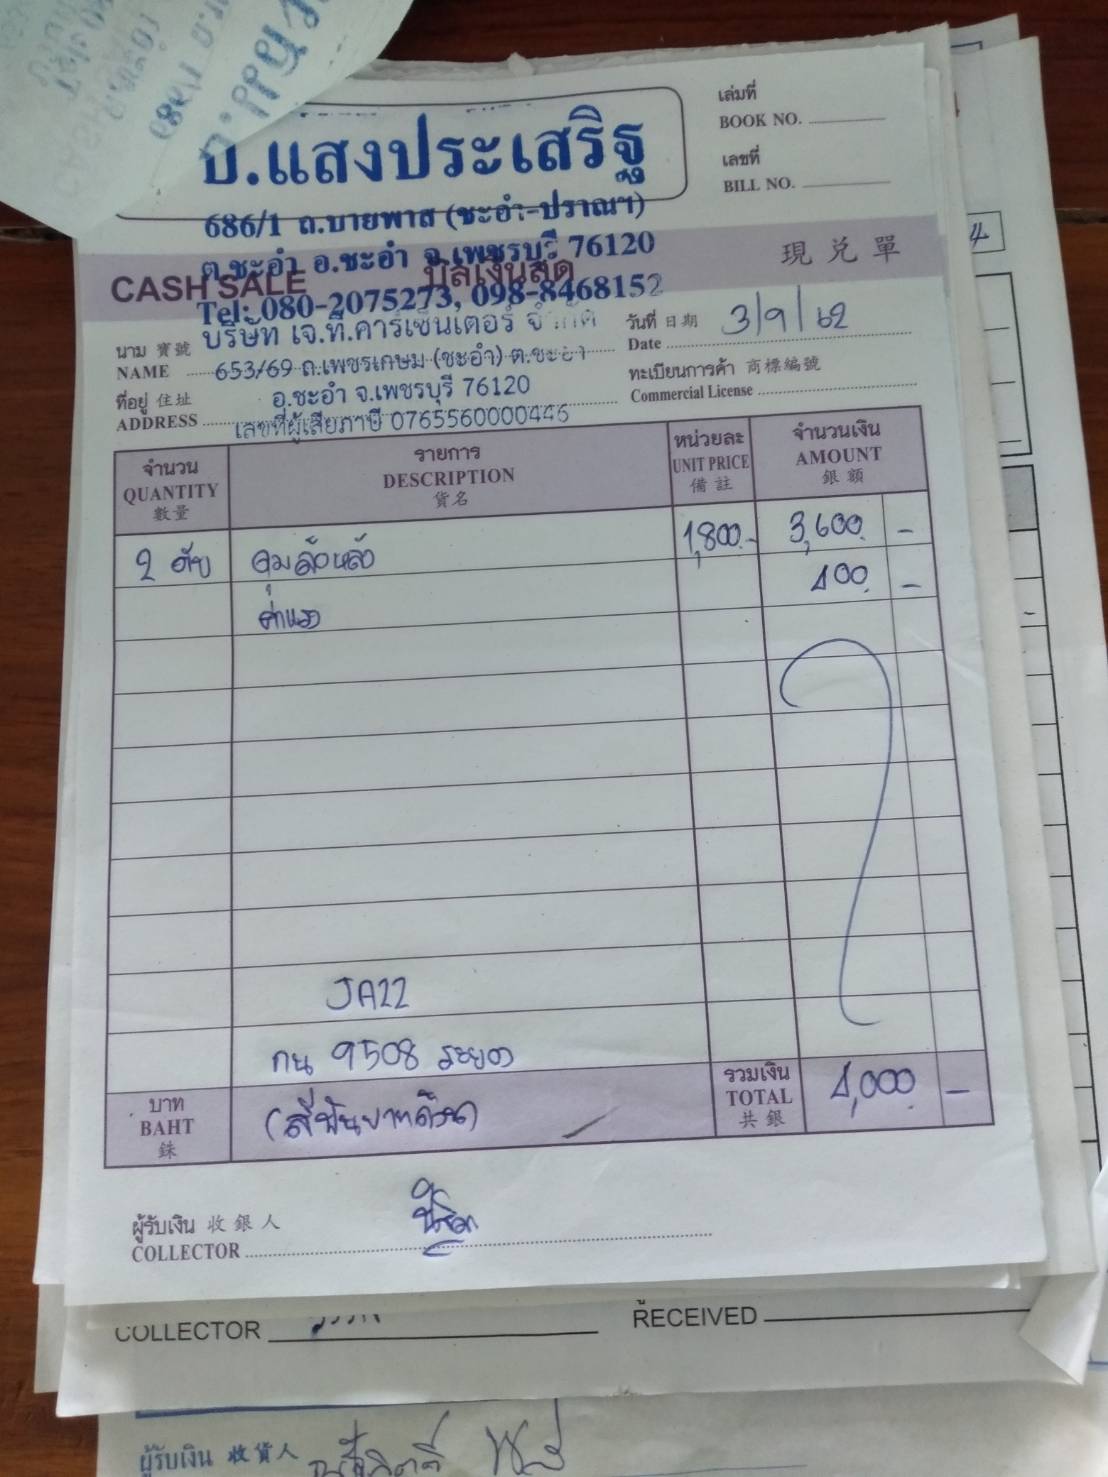 เล่มที่
BOOK NO.
เลขที่
BILL NO.
ป.แสงประเสริฐ
686/1 ถ.บายพาส (ชะอำ-ปราณฯ)
ต.ชะอำ อ.ชะอำ จ.เพชรบุรี 76120
Tel: 080-2075273, 098-8468152
CASH SALE บิลเงินสด 現兑單
บริษัท เจ.ที.คาร์เซ็นเตอร์ จำกัด
653/69 ถ.เพชรเกษม (ชะอำ) ต.ชะอำ
อ.ชะอำ จ.เพชรบุรี 76120
เลขที่ผู้เสียภาษี 0765560000446
นาม 寶號
NAME
ที่อยู่ 住址
ADDRESS
วันที่ 日期 3/9/62
Date
ทะเบียนการค้า 商標編號
Commercial License
จำนวน รายการ หน่วยละ จำนวนเงิน
QUANTITY DESCRIPTION UNIT PRICE AMOUNT
數量 貨名 備註 銀額
2 ตับ ดุมล้อหลัง 1,800.- 3,600 -
ค่าแรง 400 -
JA22
กน 9508 ระยอง
บาท รวมเงิน
BAHT (สี่พันบาทถ้วน) TOTAL 4,000 -
銖 共銀
ผู้รับเงิน 收銀人
COLLECTOR
COLLECTOR RECEIVED
ผู้รับเงิน 收貨人